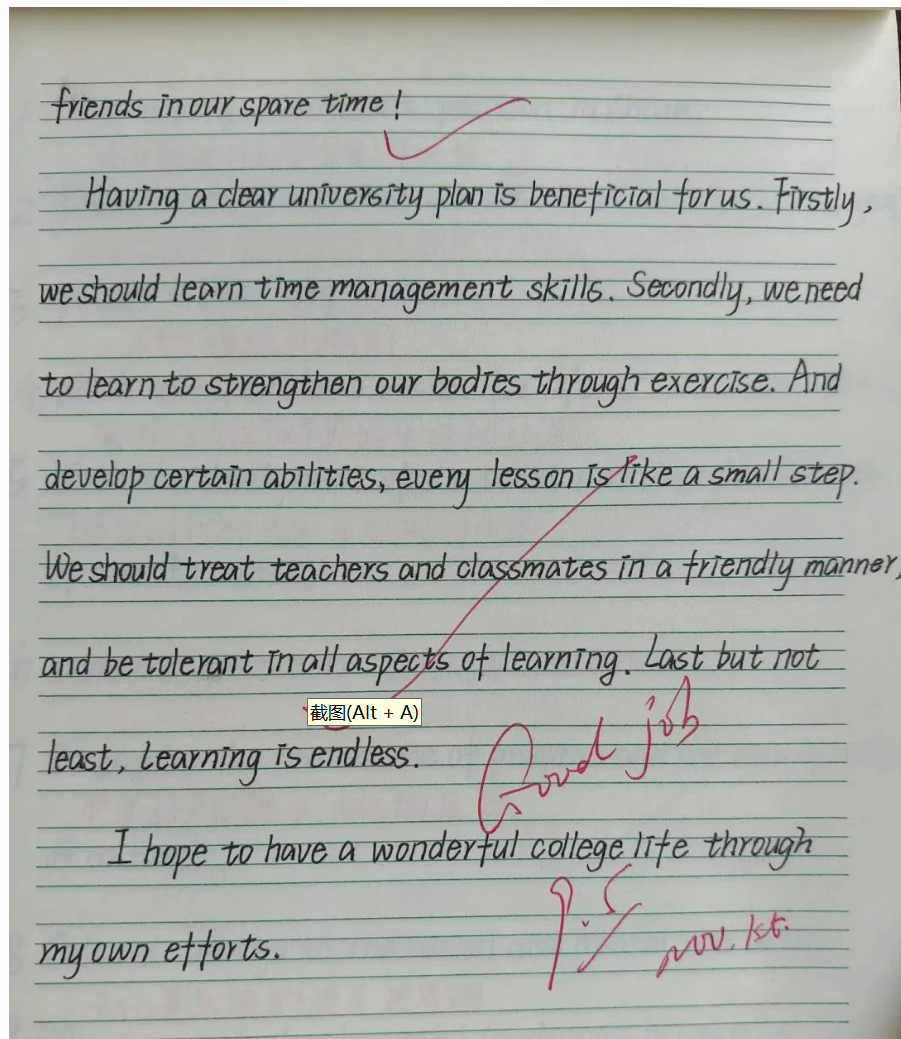 friends in our spare time!
Having a clear university plan is beneficial for us. Firstly,
we should learn time management skills. Secondly, we need
to learn to strengthen our bodies through exercise. And
develop certain abilities, every lesson is like a small step.
We should treat teachers and classmates in a friendly manner,
and be tolerant in all aspects of learning. Last but not
截图(Alt + A)
least, Learning is endless.
Good job
I hope to have a wonderful college life through
9.5
my own efforts.
Nov. 1st.